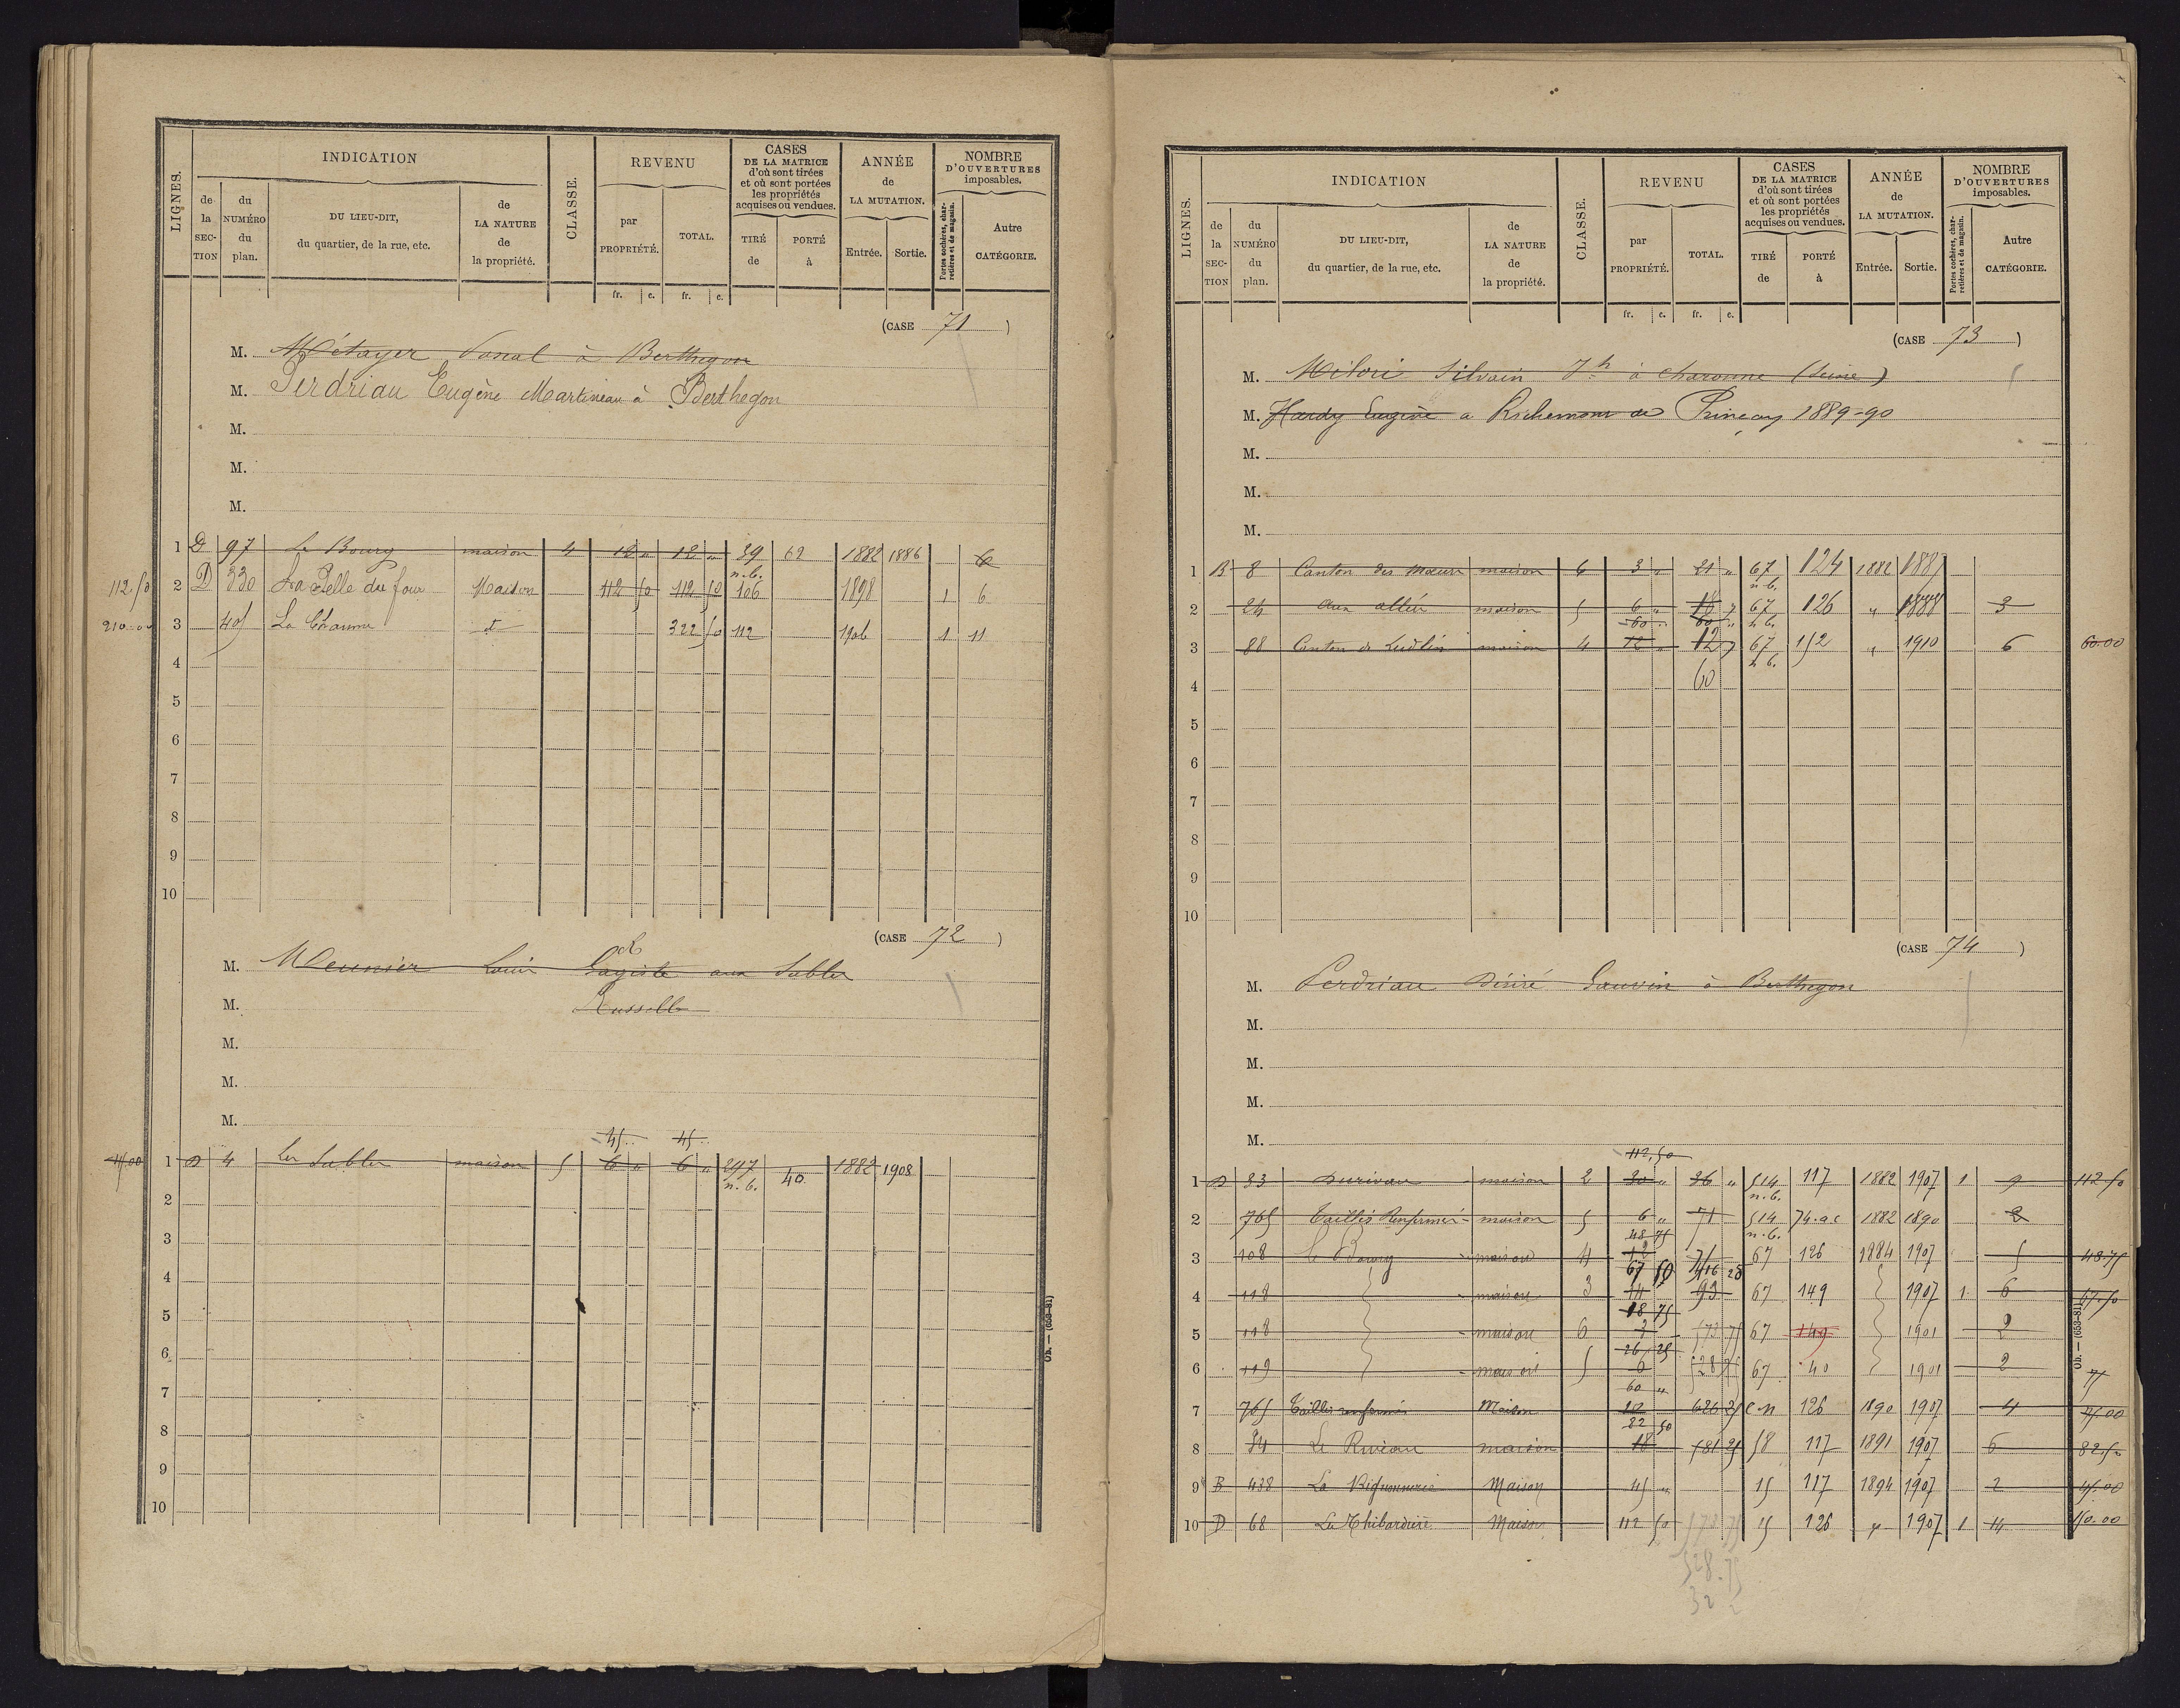 LIGNES.
INDICATION
de la SEC-TION
du NUMÉRO du plan.
DU LIEU-DIT, du quartier, de la rue, etc.
de LA NATURE de la propriété.
CLASSE.
REVENU
par PROPRIÉTÉ.
TOTAL.
CASES DE LA MATRICE d'où sont tirées et où sont portées les propriétés acquises ou vendues.
TIRÉ de
PORTÉ à
ANNÉE de LA MUTATION.
Entrée.
Sortie.
NOMBRE D'OUVERTURES imposables.
Portes cochères, charretières et de magasin.
Autre CATÉGORIE.
fr. c. fr. c.
(CASE 71)
M. Métayer à Berthegon
M. Perdriau Eugène Martineau à Berthegon
M.
M.
M.
1 D 97 Le Bourg maison 4 12 " 12 " 39 n.b. 62 1882 1886 6
112 50 2 D 330 La Pelle du four Maison 112 50 112 50 106 1898 1 6
210.00 3 405 La Chaume d° 322 50 112 1906 1 11
4
5
6
7
8
9
10
(CASE 72)
M. Meunier Louis aux Sables
M.
M.
M.
M.
45.. 45..
45.00 1 D 4 Les Sables maison 5 6 " 6 " 297 n.b. 40 1882 1908
2
3
4
5
6
7
8
9
10
Ob. — (653-81)
LIGNES.
INDICATION
de la SEC-TION
du NUMÉRO du plan.
DU LIEU-DIT, du quartier, de la rue, etc.
de LA NATURE de la propriété.
CLASSE.
REVENU
par PROPRIÉTÉ.
TOTAL.
CASES DE LA MATRICE d'où sont tirées et où sont portées les propriétés acquises ou vendues.
TIRÉ de
PORTÉ à
ANNÉE de LA MUTATION.
Entrée.
Sortie.
NOMBRE D'OUVERTURES imposables.
Portes cochères, charretières et de magasin.
Autre CATÉGORIE.
fr. c. fr. c.
(CASE 73)
M. Silvain Jh à Charonne (Seine)
M. Hardy Eugène a Richemont de Prinçay 1889-90
M.
M.
M.
1 B 8 Canton des maison 6 3 " 21 " 67 n.b. 124 1882 1887
2 24 maison 5 6 " 18 67 n.b. 126 " 1888 3
60 .. 60 ..
3 88 Canton de maison 4 12 " 12 67 n.b. 152 " 1910 6 60.00
4 60
5
6
7
8
9
10
(CASE 74)
M. Perdriau Désiré Gauvin à Berthegon
M.
M.
M.
M.
112.50
1 D 33 maison 2 30 " 36 " 514 n.b. 117 1882 1907 1 9 112.50
2 765 Taillis Renfermés maison 5 6 " 71 514 n.b. 74.a.c 1882 1890 2
48 75
3 108 Le Bourg maison 4 12 71 67 126 1884 1907 5 48.75
67 50 416 25
4 118 maison 3 14 93 67 149 1907 1 6 67.50
18 75
5 118 maison 6 7 573 75 67 149 1901 2
26 25
6 119 maison 5 6 528 75 67 40 1901 2 75
60 "
7 765 Taillis renfermés Maison 12 626 25 c n 126 1890 1907 4 75.00
82 50
8 34 Le Riveau maison 18 581 25 58 117 1891 1907 6 82.50
9 B 438 La Maison 45 " 15 117 1894 1907 2 45.00
10 D 68 La Thibardière Maison 112 50 573 75 15 126 " 1907 1 14 150.00
528.75
Ob. — (653-81)